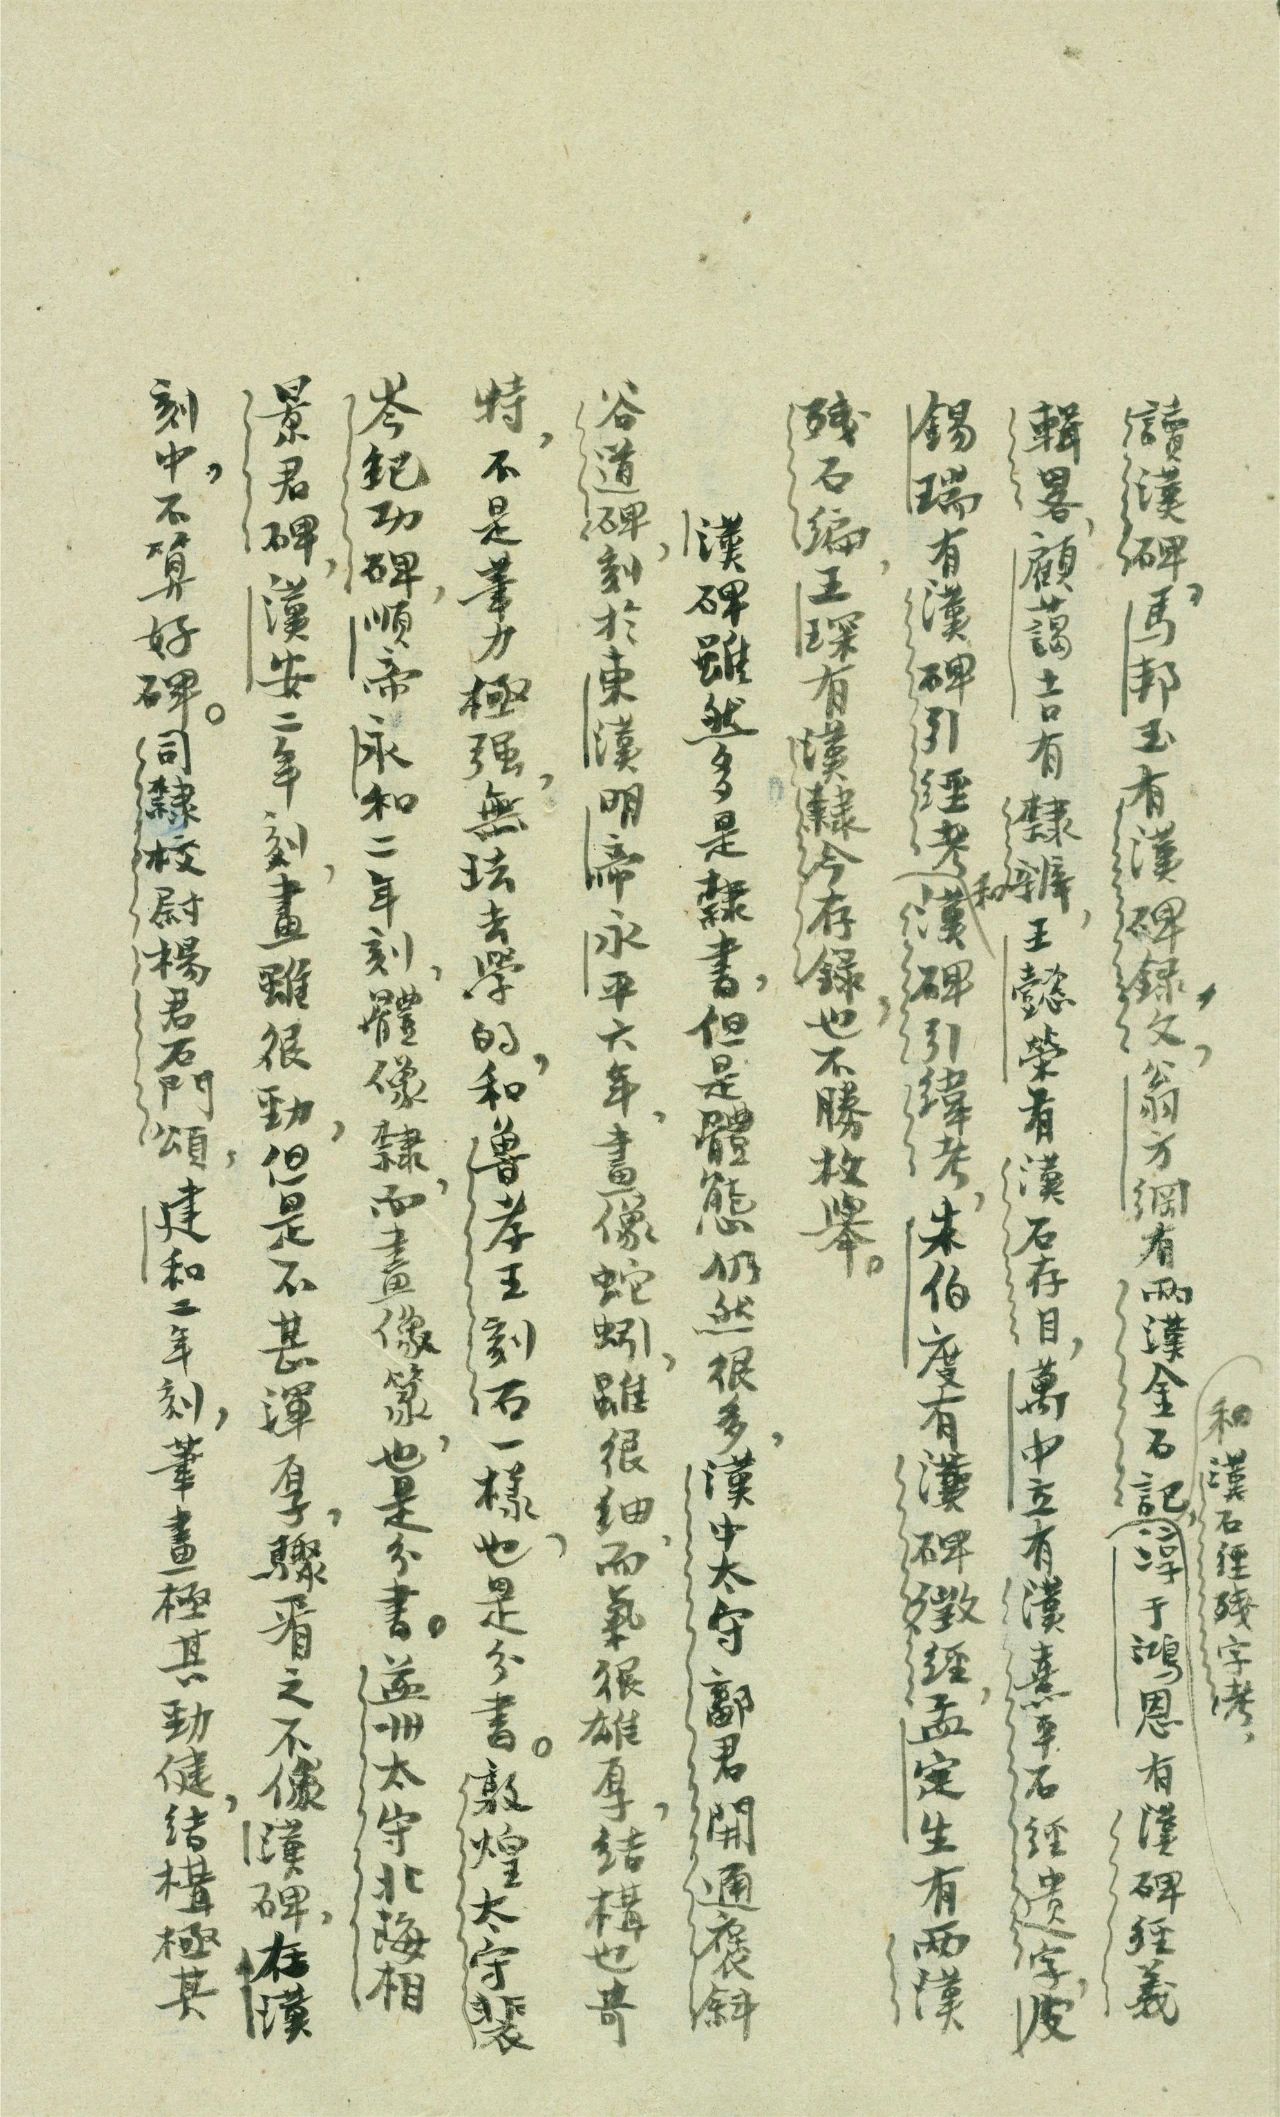 讀漢碑，馬邦玉有漢碑錄文，翁方綱有兩漢金石記，
和漢石經殘字考，
淳于鴻恩有漢碑經義
輯畧，顧藹吉有隸辨，王懿榮有漢石存目，萬中立有漢熹平石經遺字，皮
錫瑞有漢碑引經考和漢碑引緯考，朱伯度有漢碑徵經，孟定生有兩漢
殘石編，王琛有漢隸今存録也，不勝枚舉。
漢碑雖然多是隸書，但是體態仍然很多，漢中太守鄐君開通褒斜
谷道碑，刻於東漢明帝永平六年，畫像蛇蚓，雖很細，而氣很雄厚，結構也奇
特，不是筆力極强，無法去學的，和魯孝王刻石一樣也，是分書。敦煌太守裴
岑紀功碑，順帝永和二年刻，體像隸，而畫像篆，也是分書。益州太守北海相
景君碑，漢安二年刻，畫雖很勁，但是不甚渾厚，驟看之不像漢碑，在漢
刻中，不算好碑。司隸校尉楊君石門頌，建和二年刻，筆畫極其勁健，結構極其